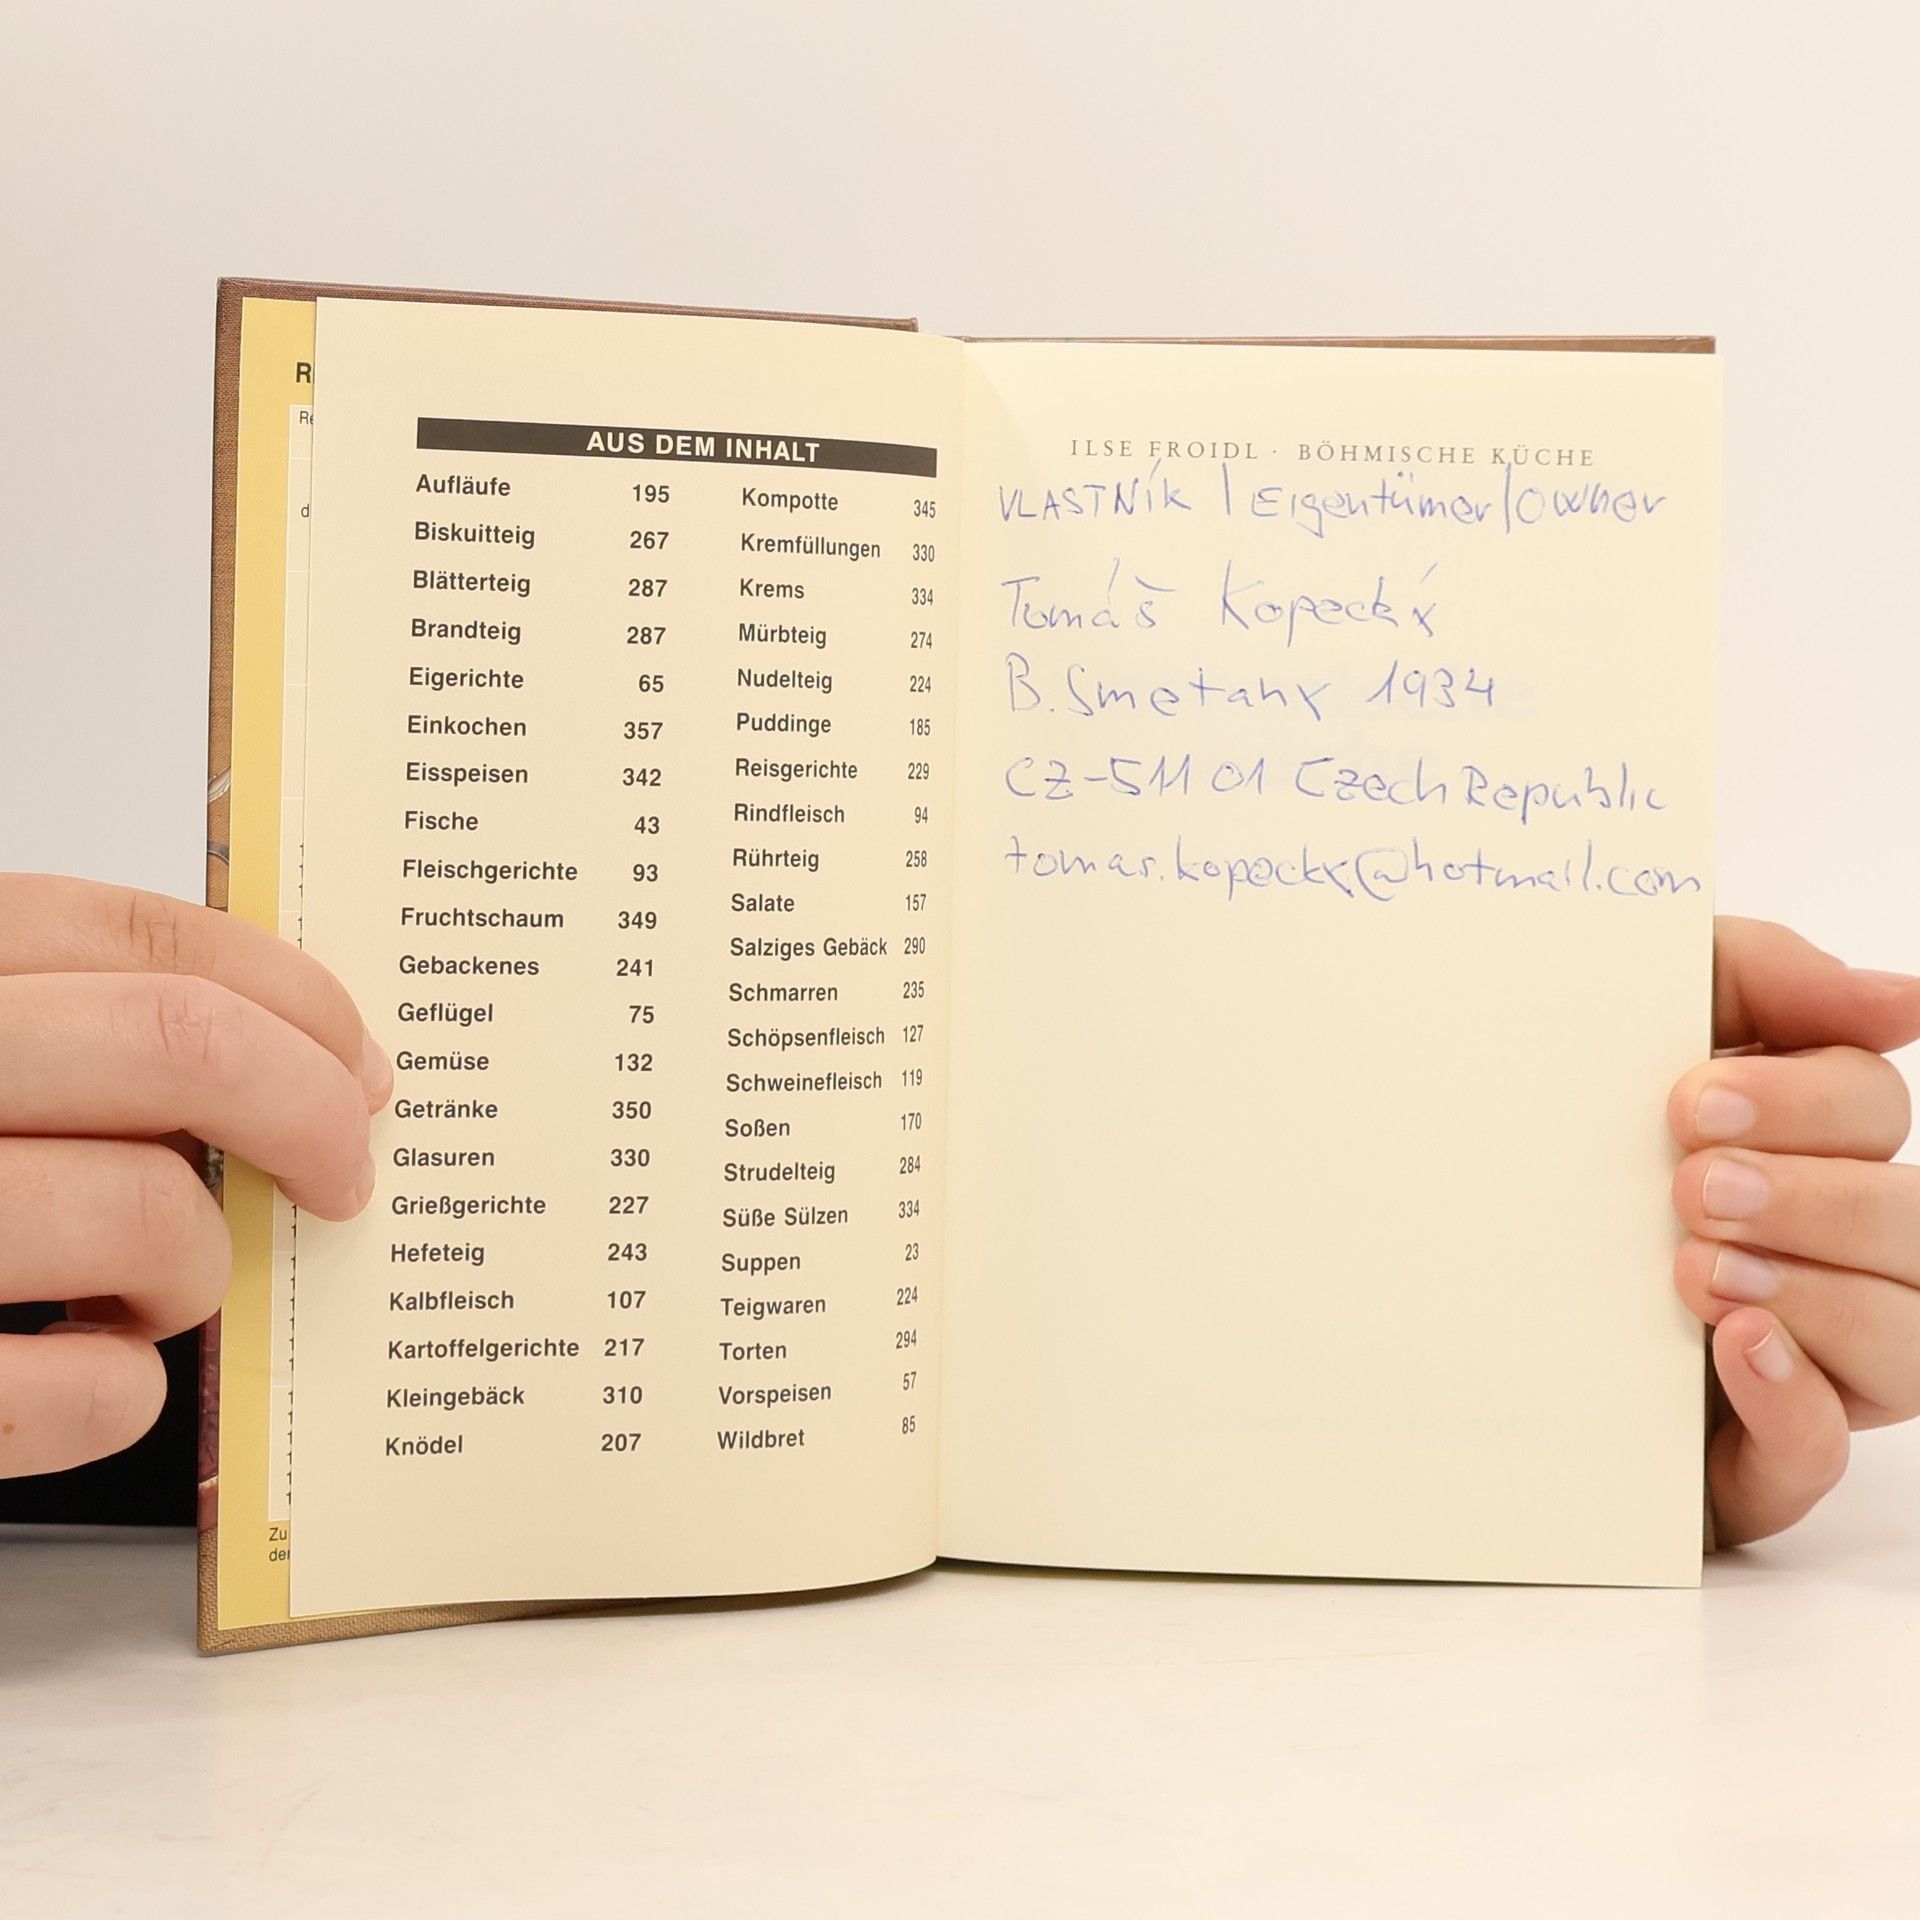 R
Re
d
Zu
der
AUS DEM INHALT
Aufläufe 195
Biskuitteig 267
Blätterteig 287
Brandteig 287
Eigerichte 65
Einkochen 357
Eisspeisen 342
Fische 43
Fleischgerichte 93
Fruchtschaum 349
Gebackenes 241
Geflügel 75
Gemüse 132
Getränke 350
Glasuren 330
Grießgerichte 227
Hefeteig 243
Kalbfleisch 107
Kartoffelgerichte 217
Kleingebäck 310
Knödel 207
Kompotte 345
Kremfüllungen 330
Krems 334
Mürbteig 274
Nudelteig 224
Puddinge 185
Reisgerichte 229
Rindfleisch 94
Rührteig 258
Salate 157
Salziges Gebäck 290
Schmarren 235
Schöpsenfleisch 127
Schweinefleisch 119
Soßen 170
Strudelteig 284
Süße Sülzen 334
Suppen 23
Teigwaren 224
Torten 294
Vorspeisen 57
Wildbret 85
ILSE FROIDL · BÖHMISCHE KÜCHE
VLASTNÍK / Eigentümer/owner
Tomáš Kopecký
B. Smetany 1934
CZ-511 01 Czech Republic
tomas.kopecky@hotmail.com